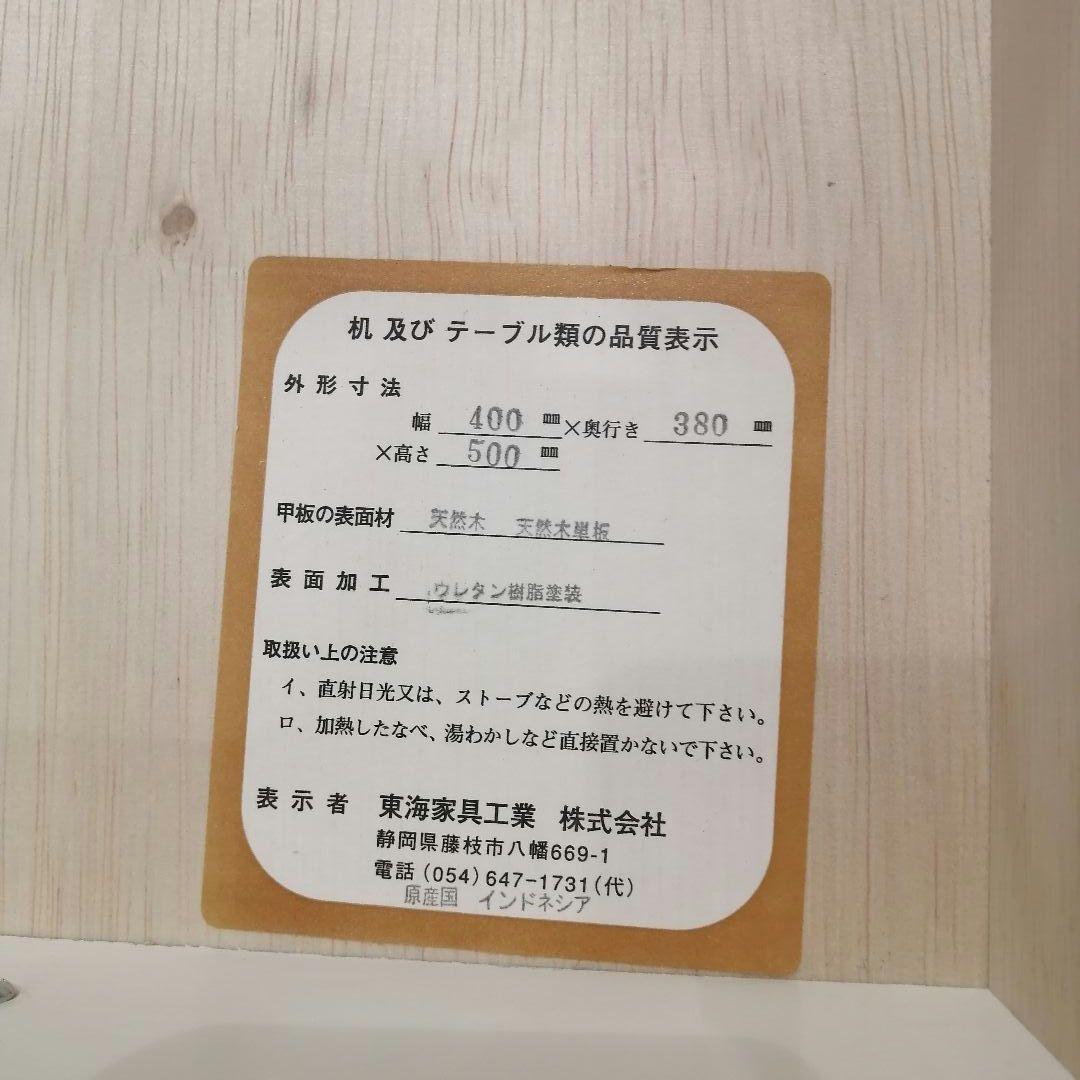 机 及び テーブル類の品質表示
外形寸法
幅 400 ㎜ ×奥行き 380 ㎜
×高さ 500 ㎜
甲板の表面材 天然木 天然木単板
表面加工 ウレタン樹脂塗装
取扱い上の注意
イ、直射日光又は、ストーブなどの熱を避けて下さい。
ロ、加熱したなべ、湯わかしなど直接置かないで下さい。
表示者 東海家具工業 株式会社
静岡県藤枝市八幡669-1
電話(054)647-1731(代)
原産国 インドネシア